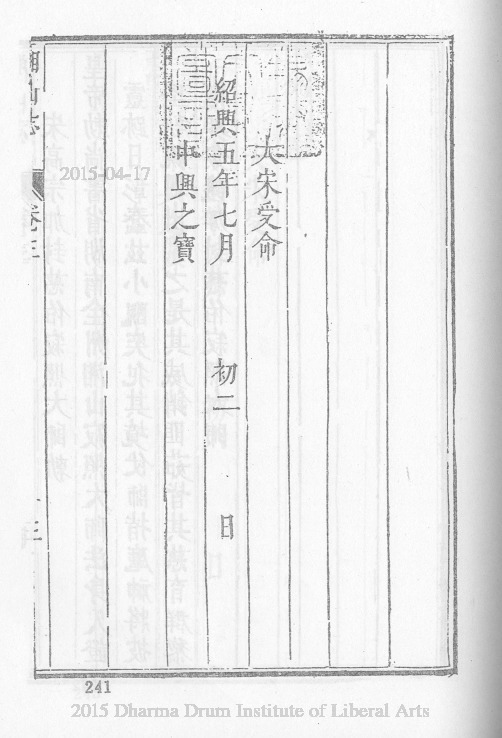 大宋受命
紹興五年七月 初二 日
中興之寶
卷三
2015-04-17
241
2015 Dharma Drum Institute of Liberal Arts